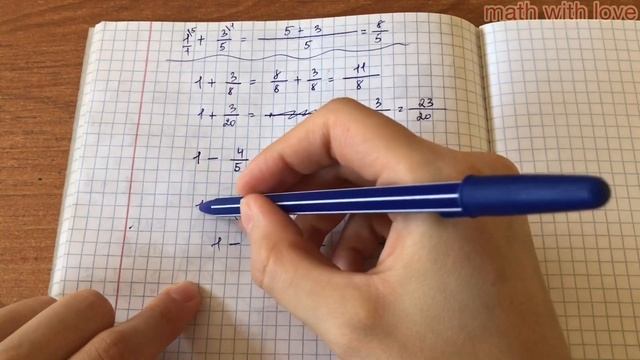 math with love
1\5/1 + 3\1/5 = 5 + 3/5 = 8/5
1 + 3/8 = 8/8 + 3/8 = 11/8
1 + 3/20 = 3 = 23/20
1 - 4/5
1 -